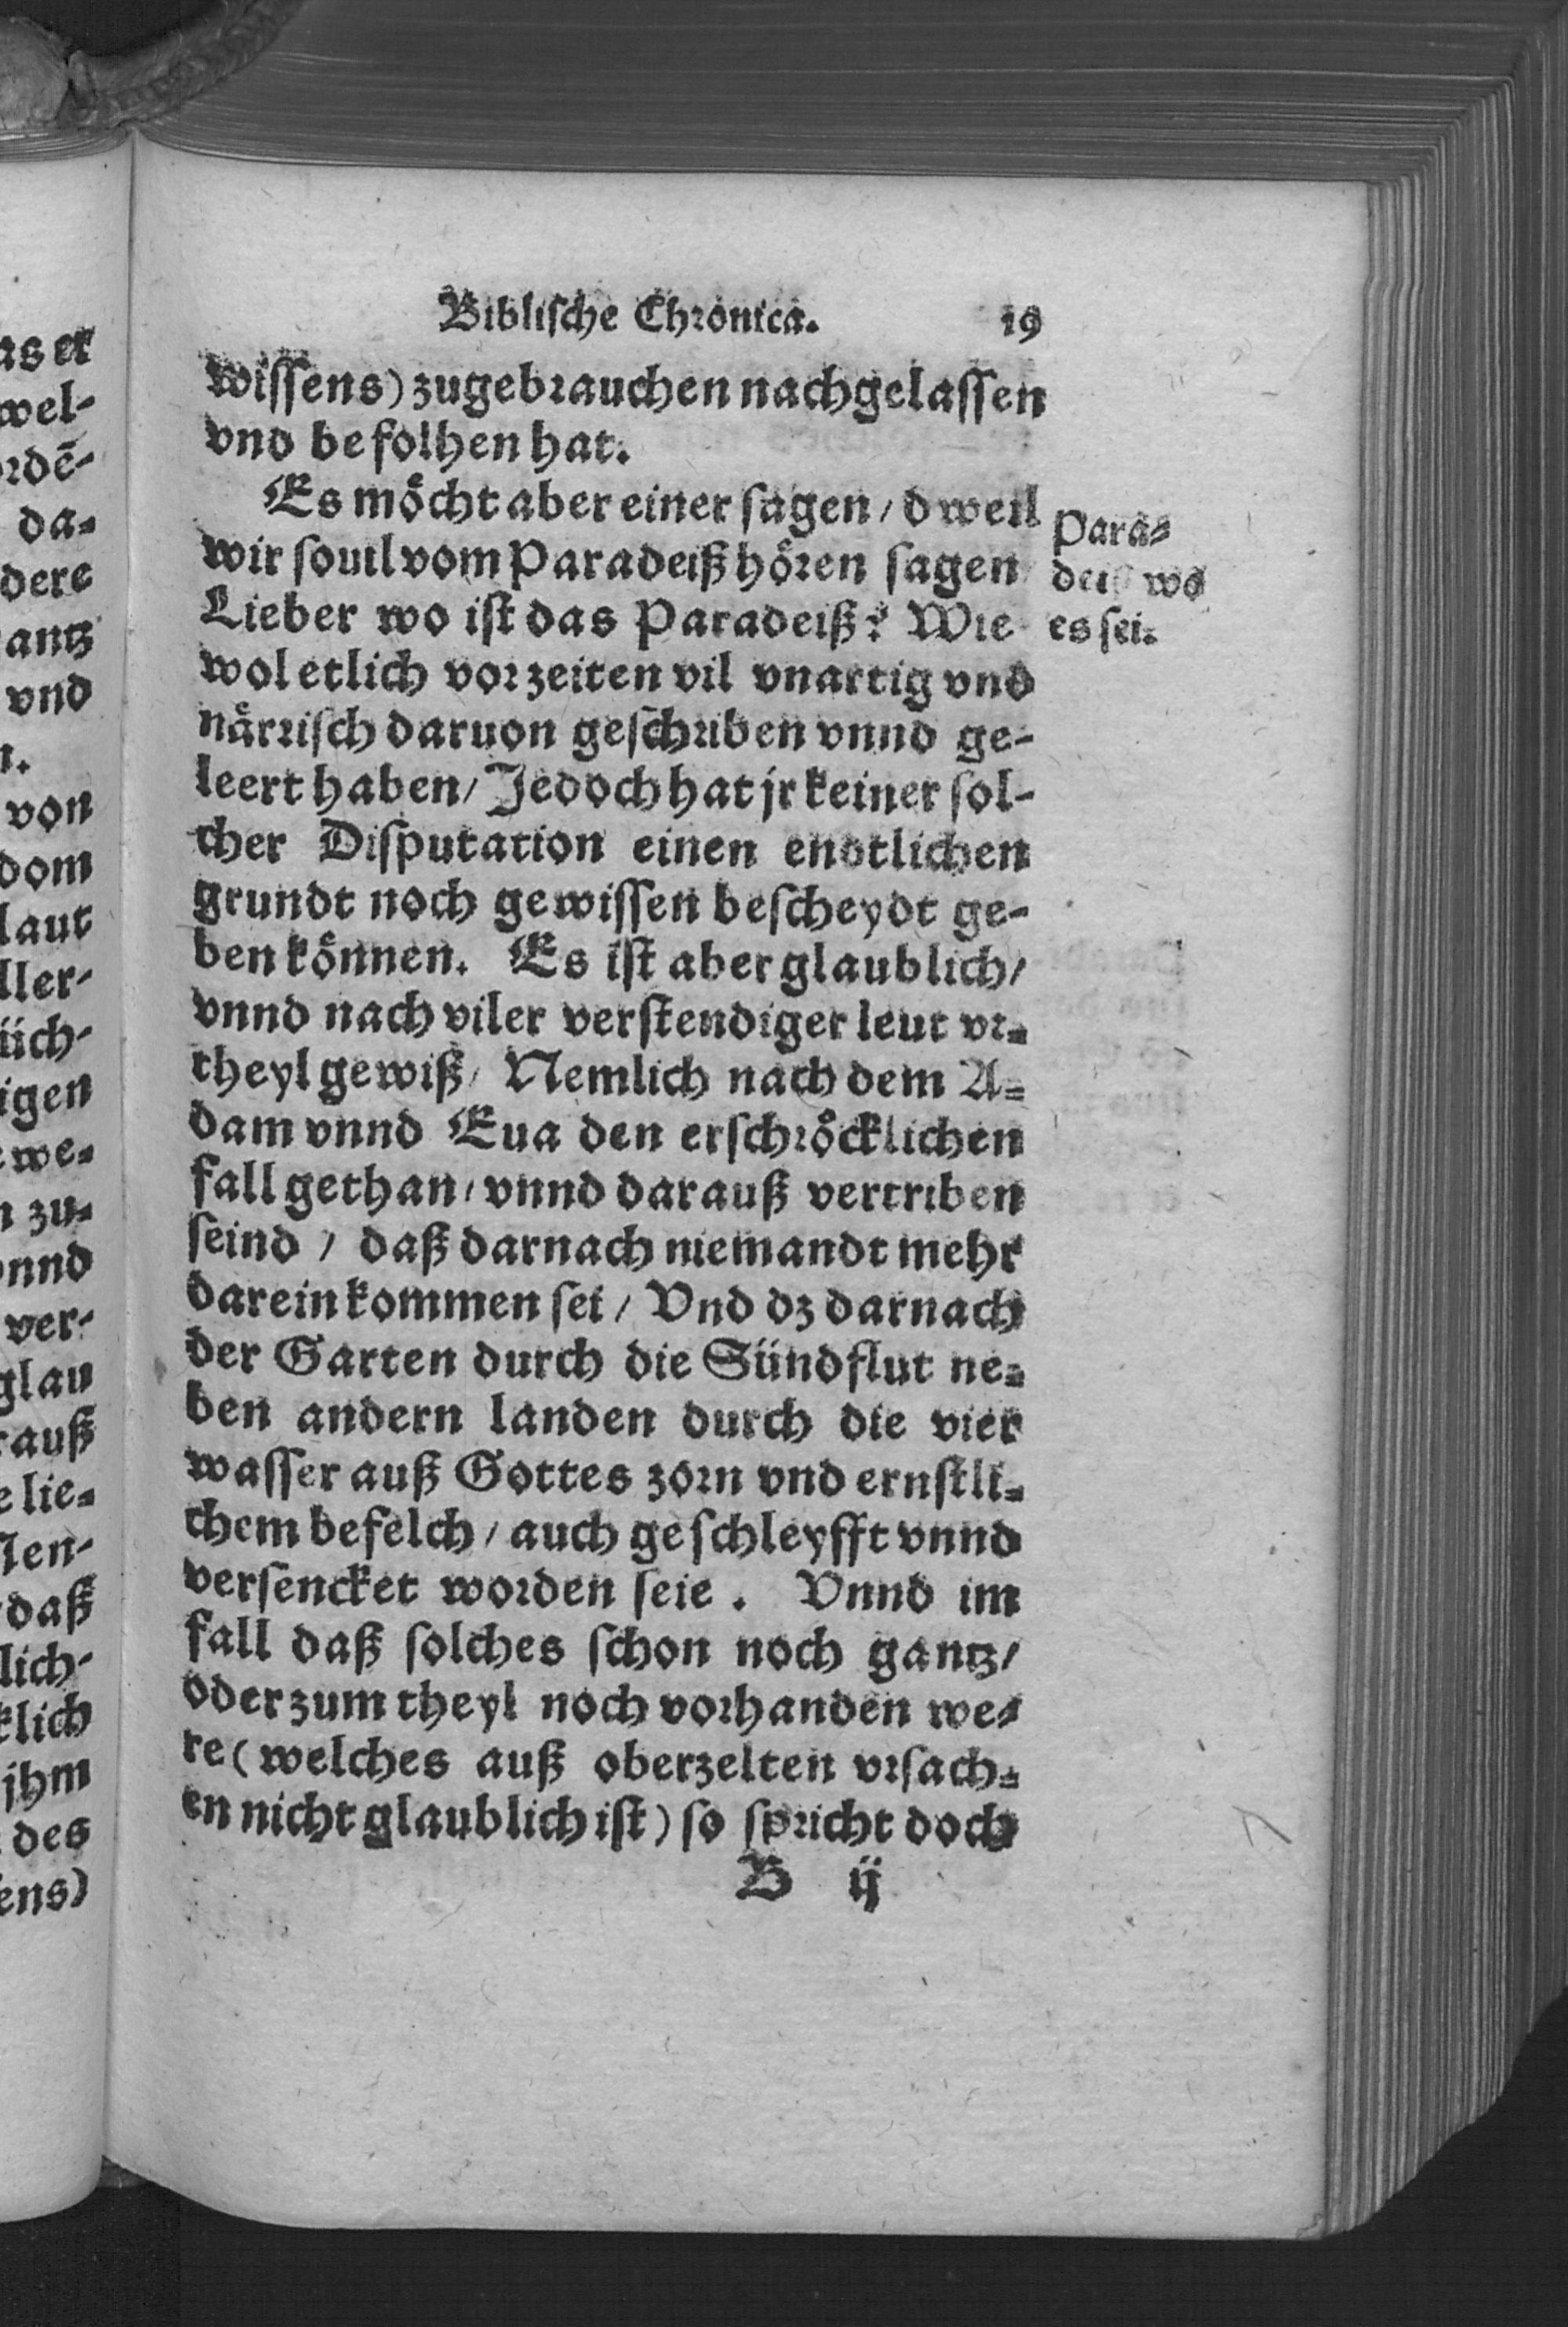 as er
wel-
ordē-
da-
dere
antz
vnd
n.
von
dom
laut
ller-
üch-
igen
we-
zu-
vnnd
ver-
glau
rauß
lie-
Jen-
daß
lich-
klich
jhm
des
sens)
Bibliſche Chronica. 19
wiſſens) zugebrauchen nachgelaſſen
vnd befolhen hat.
Es moͤcht aber einer ſagen / dweil
wir ſouil vom Paradeiß hoͤren ſagen
Lieber wo iſt das Paradeiß? Wie
wol etlich vorzeiten vil vnartig vnd
naͤrriſch daruon geſchriben vnnd ge-
leert haben / Jedoch hat jr keiner ſol-
cher Diſputation einen endtlichen
grundt noch gewiſſen beſcheydt ge-
ben koͤnnen. Es iſt aber glaublich /
vnnd nach viler verſtendiger leut vr-
theyl gewiß / Nemlich nach dem A-
dam vnnd Eua den erſchroͤcklichen
fall gethan / vnnd darauß vertriben
ſeind / daß darnach niemandt mehr
darein kommen ſei / Vnd dz darnach
der Garten durch die Sündflut ne-
ben andern landen durch die vier
waſſer auß Gottes zorn vnd ernſtli-
chem befelch / auch geſchleyfft vnnd
verſencket worden ſeie. Vnnd im
fall daß ſolches ſchon noch gantz /
oder zum theyl noch vorhanden we-
re (welches auß oberzelten vrſach-
en nicht glaublich iſt) ſo ſpricht doch
B ij
Para-
deiß wo
es ſei.